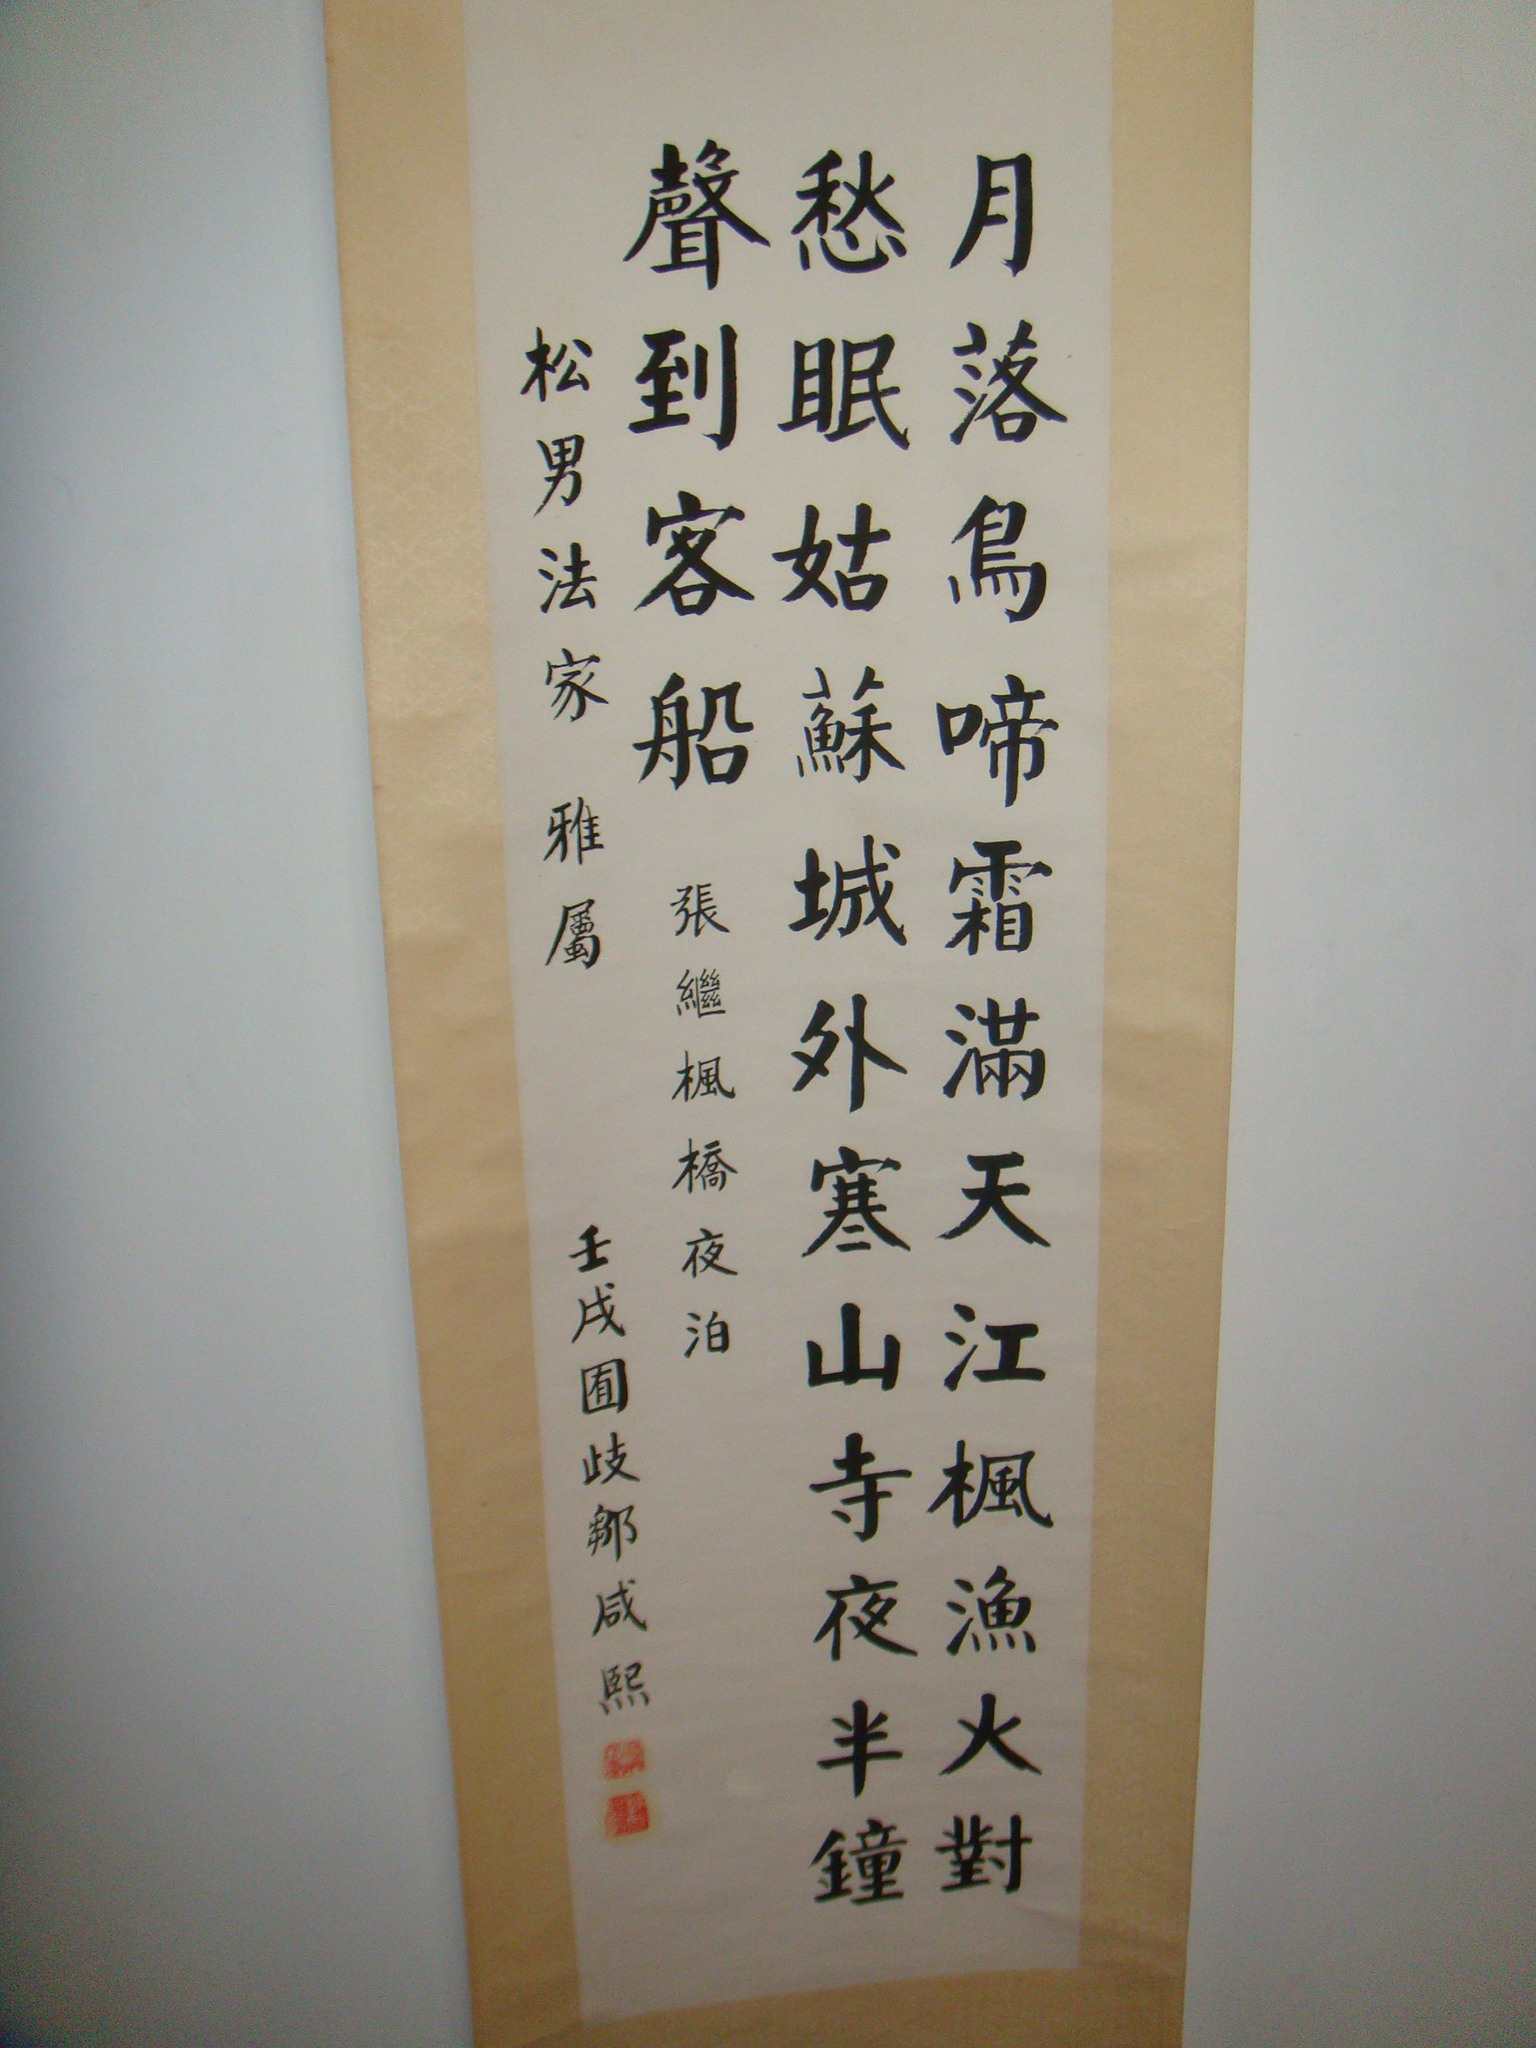 月落烏啼霜滿天江楓漁火對
愁眠姑蘇城外寒山寺夜半鐘
聲到客船 張繼楓橋夜泊
松男法家 雅屬 壬戌囿歧鄒咸熙